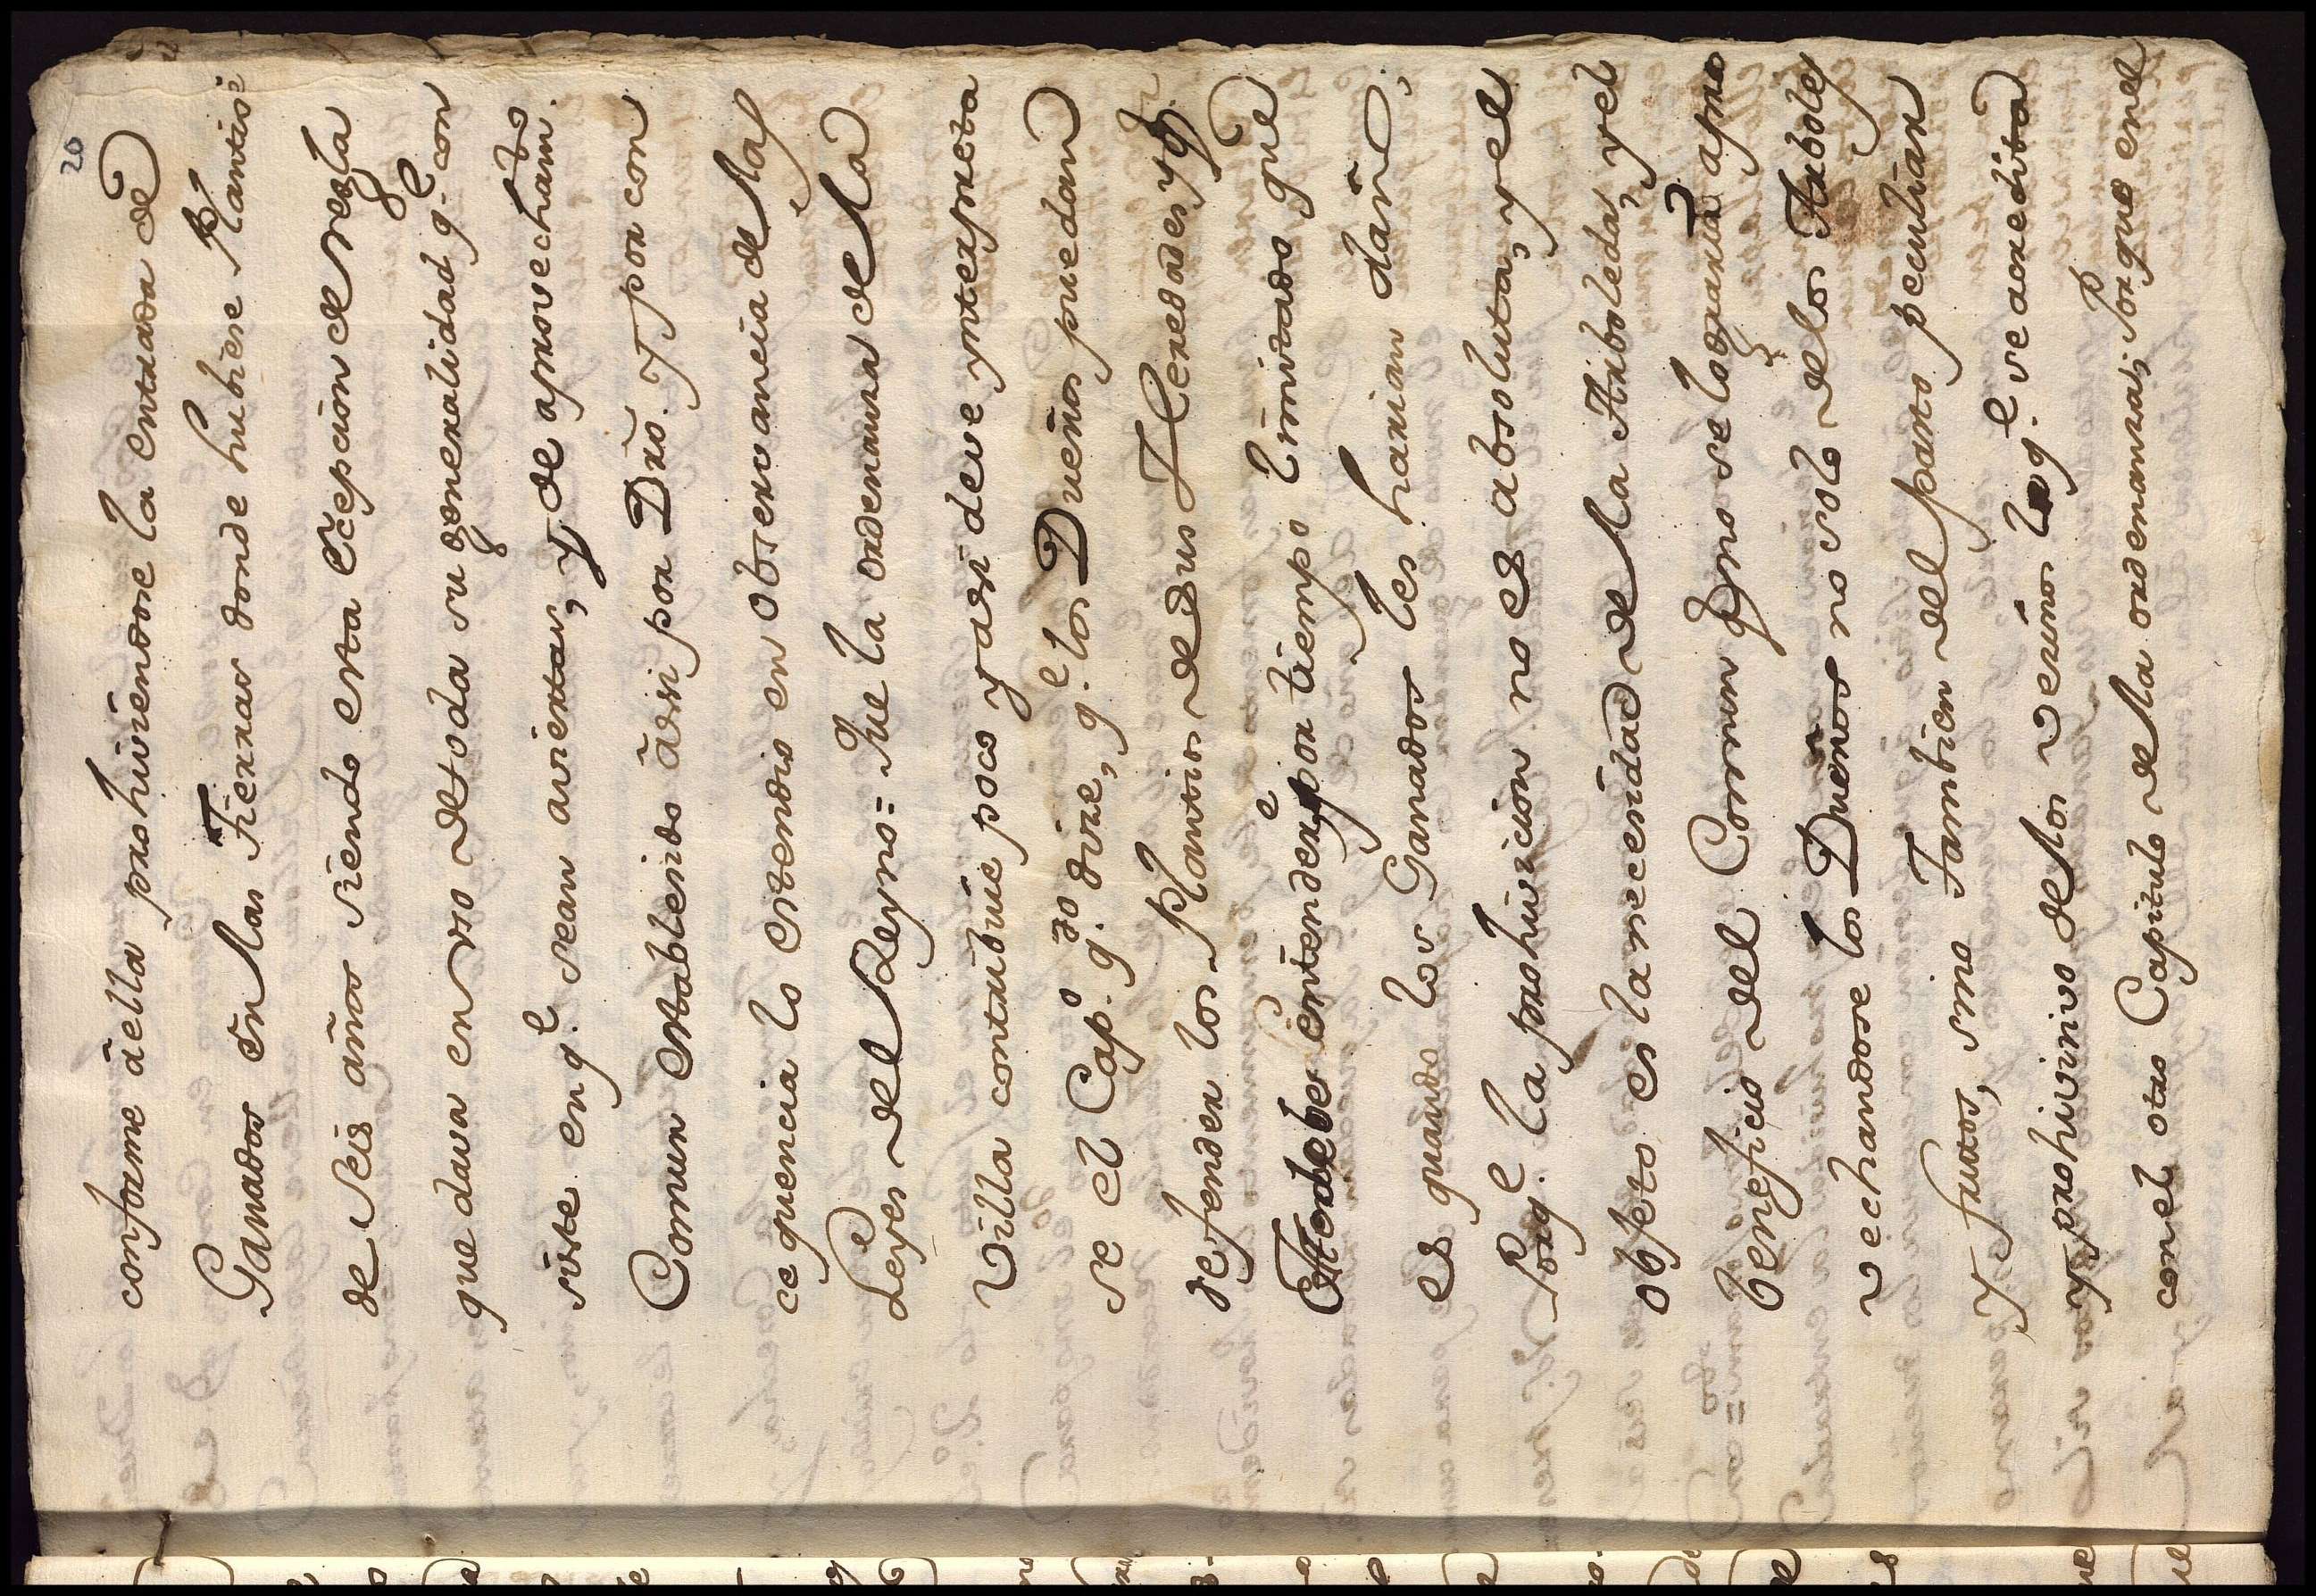 20
conforme àella prohiuiendose la entrada de
Ganados en las Tierras donde hubiere Plantios
de seis años siendo esta ecepcion de regla
que daua en vso de toda su generalidad q.e con
siste en q.e sean auiertas, y de aprouecham.to
Comun establecido assi por Dro. y por con
cequencia lo estendio en obseruancia de las
Leyes del Reyno = Que la ordenanza de la
Villa contribuie poco y assi deue ynterpreta
se el Cap.o q.do dize, q.e los Dueños puedan
defender los plantios de sus Heredades, y q.e
esto debe entenderse por tiempo limitado que
es quando los Ganados les harian daño,
Porq.e la prohiuicion no es absoluta, y el
objeto es la necesidad de la Arboleda, y el
beneficio del Comun q.e no se lograria apro
vechandose los Dueños no solo de los Arboles
y frutos, sino Tambien del pasto peculiar
y prohiuitivo de los vecinos lo q.e se acredita
con el otro Capitulo de la ordenanza; Porque en el